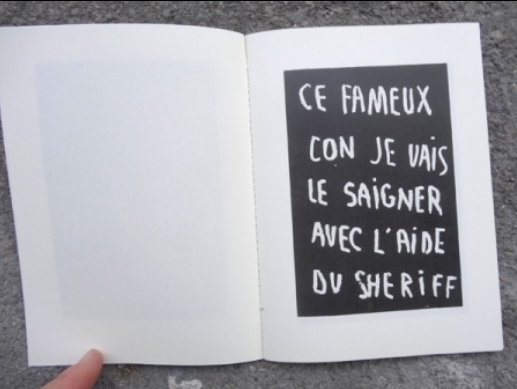 CE FAMEUX
CON JE VAIS
LE SAIGNER
AVEC L'AIDE
DU SHERIFF